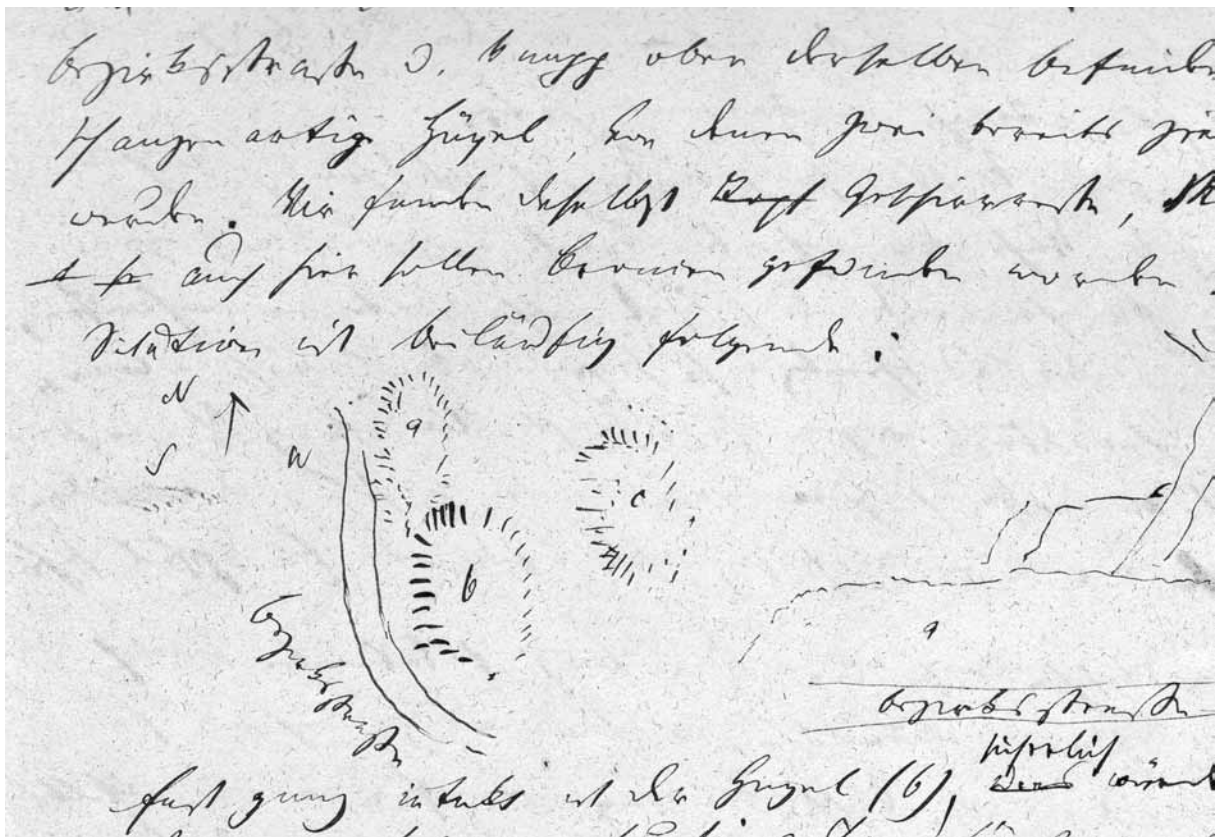 Bezirksstraße u. knapp ober derselben befinden
schanzenartige Hügel, von denen zwei bereits
wurden. Wir fanden daselbst Topf Geschirrreste,
auch hier sollen Bronzen gefunden worden
Situation ist beiläufig folgende:
N
S
a
c
b
Bezirksstraße
a
Bezirksstraße
sicherlich
fast ganz intakt ist der Hügel (b),